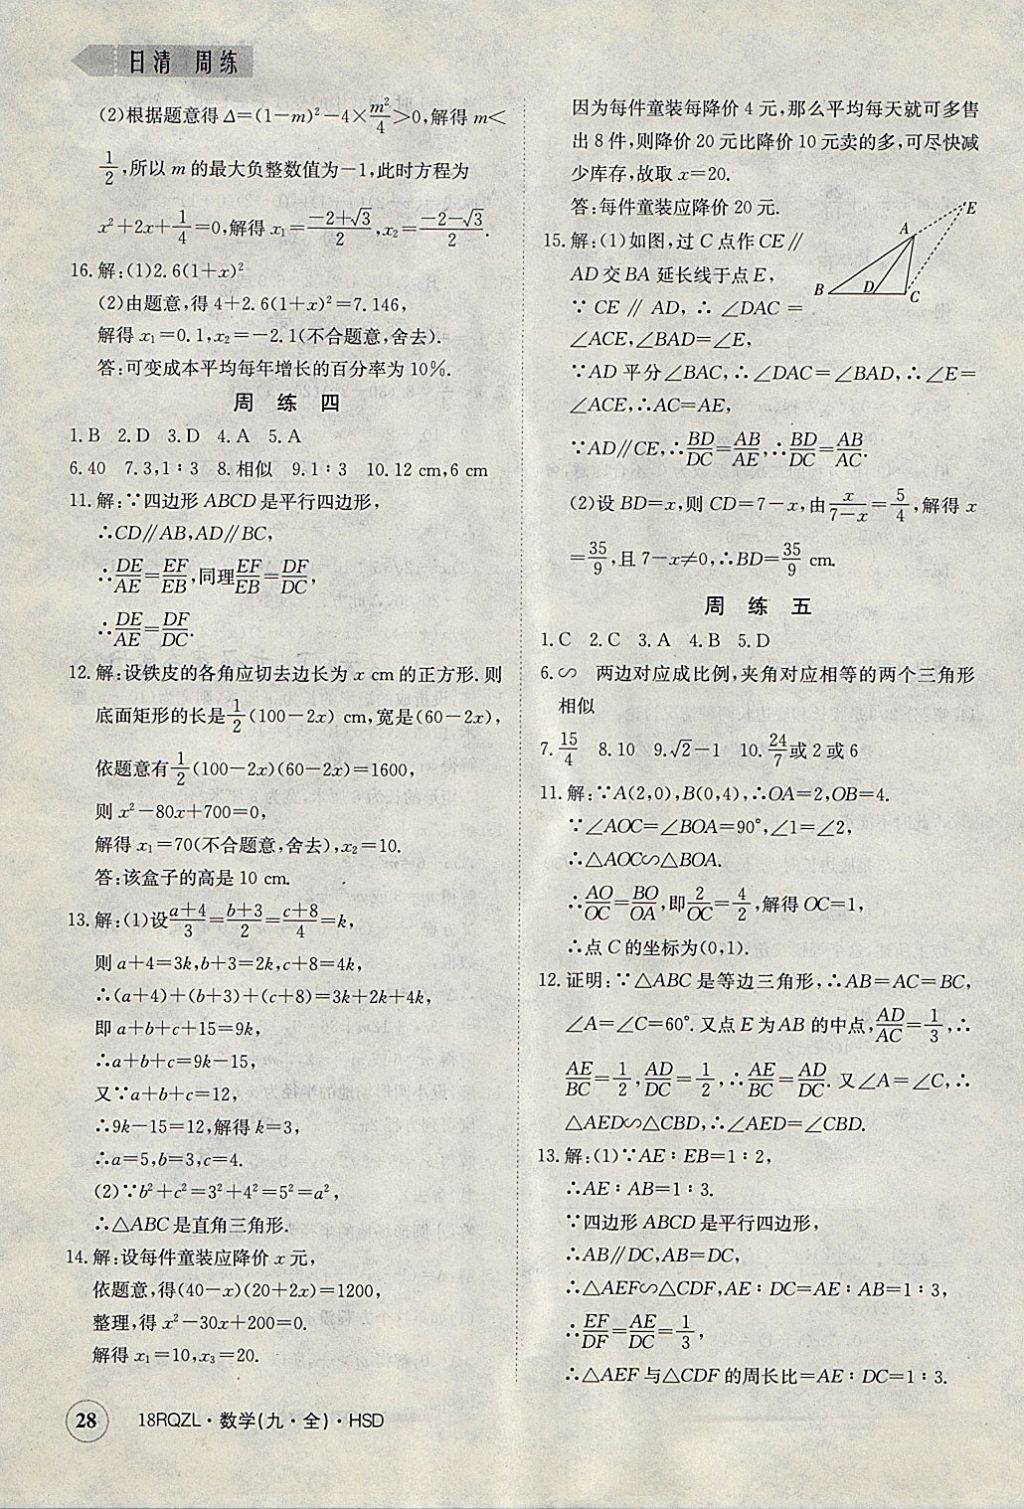 日清 周练
(2)根据题意得Δ=(1-m)²-4×m²/4>0,解得m<
1/2,所以m的最大负整数值为-1,此时方程为
x²+2x+1/4=0,解得x₁=(-2+√3)/2,x₂=(-2-√3)/2.
16.解:(1)2.6(1+x)²
(2)由题意,得4+2.6(1+x)²=7.146,
解得x₁=0.1,x₂=-2.1(不合题意,舍去).
答:可变成本平均每年增长的百分率为10%.
周 练 四
1.B 2.D 3.D 4.A 5.A
6.40 7.3,1∶3 8.相似 9.1∶3 10.12 cm,6 cm
11.解:∵四边形ABCD是平行四边形,
∴CD∥AB,AD∥BC,
∴DE/AE=EF/EB,同理EF/EB=DF/DC,
∴DE/AE=DF/DC.
12.解:设铁皮的各角应切去边长为x cm的正方形.则
底面矩形的长是1/2(100-2x) cm,宽是(60-2x),
依题意有1/2(100-2x)(60-2x)=1600,
则x²-80x+700=0,
解得x₁=70(不合题意,舍去),x₂=10.
答:该盒子的高是10 cm.
13.解:(1)设(a+4)/3=(b+3)/2=(c+8)/4=k,
则a+4=3k,b+3=2k,c+8=4k,
∴(a+4)+(b+3)+(c+8)=3k+2k+4k,
即a+b+c+15=9k,
∴a+b+c=9k-15,
又∵a+b+c=12,
∴9k-15=12,解得k=3,
∴a=5,b=3,c=4.
(2)∵b²+c²=3²+4²=5²=a²,
∴△ABC是直角三角形.
14.解:设每件童装应降价x元,
依题意,得(40-x)(20+2x)=1200,
整理,得x²-30x+200=0.
解得x₁=10,x₃=20.
因为每件童装每降价4元,那么平均每天就可多售
出8件,则降价20元比降价10元卖的多,可尽快减
少库存,故取x=20.
答:每件童装应降价20元.
15.解:(1)如图,过C点作CE∥
AD交BA延长线于点E,
∵CE∥AD,∴∠DAC=
∠ACE,∠BAD=∠E,
A
B
C
D
E
∵AD平分∠BAC,∴∠DAC=∠BAD,∴∠E=
∠ACE,∴AC=AE,
∵AD∥CE,∴BD/DC=AB/AE,∴BD/DC=AB/AC.
(2)设BD=x,则CD=7-x,由x/(7-x)=5/4,解得x
=35/9,且7-x≠0,∴BD=35/9 cm.
周 练 五
1.C 2.C 3.A 4.B 5.D
6.∽ 两边对应成比例,夹角对应相等的两个三角形
相似
7.15/4 8.10 9.√2-1 10.24/7或2或6
11.解:∵A(2,0),B(0,4),∴OA=2,OB=4.
∵∠AOC=∠BOA=90°,∠1=∠2,
∴△AOC∽△BOA.
∴AO/OC=BO/OA,即2/OC=4/2,解得OC=1,
∴点C的坐标为(0,1).
12.证明:∵△ABC是等边三角形,∴AB=AC=BC,
∠A=∠C=60°.又点E为AB的中点,AD/AC=1/3,∴
AE/BC=1/2,AD/DC=1/2,∴AE/BC=AD/DC.又∠A=∠C,∴
△AED∽△CBD,∴∠AED=∠CBD.
13.解:(1)∵AE∶EB=1∶2,
∴AE∶AB=1∶3.
∵四边形ABCD是平行四边形,
∴AB∥DC,AB=DC,
∴△AEF∽△CDF,AE∶DC=AE∶AB=1∶3,
∴EF/DF=AE/DC=1/3,
∴△AEF与△CDF的周长比=AE∶DC=1∶3.
28 18RQZL·数学(九·全)·HSD